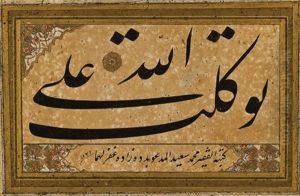 توكلت على الله
كتبه الفقير محمد سعيد المدعو بدده زاده غفر لهما